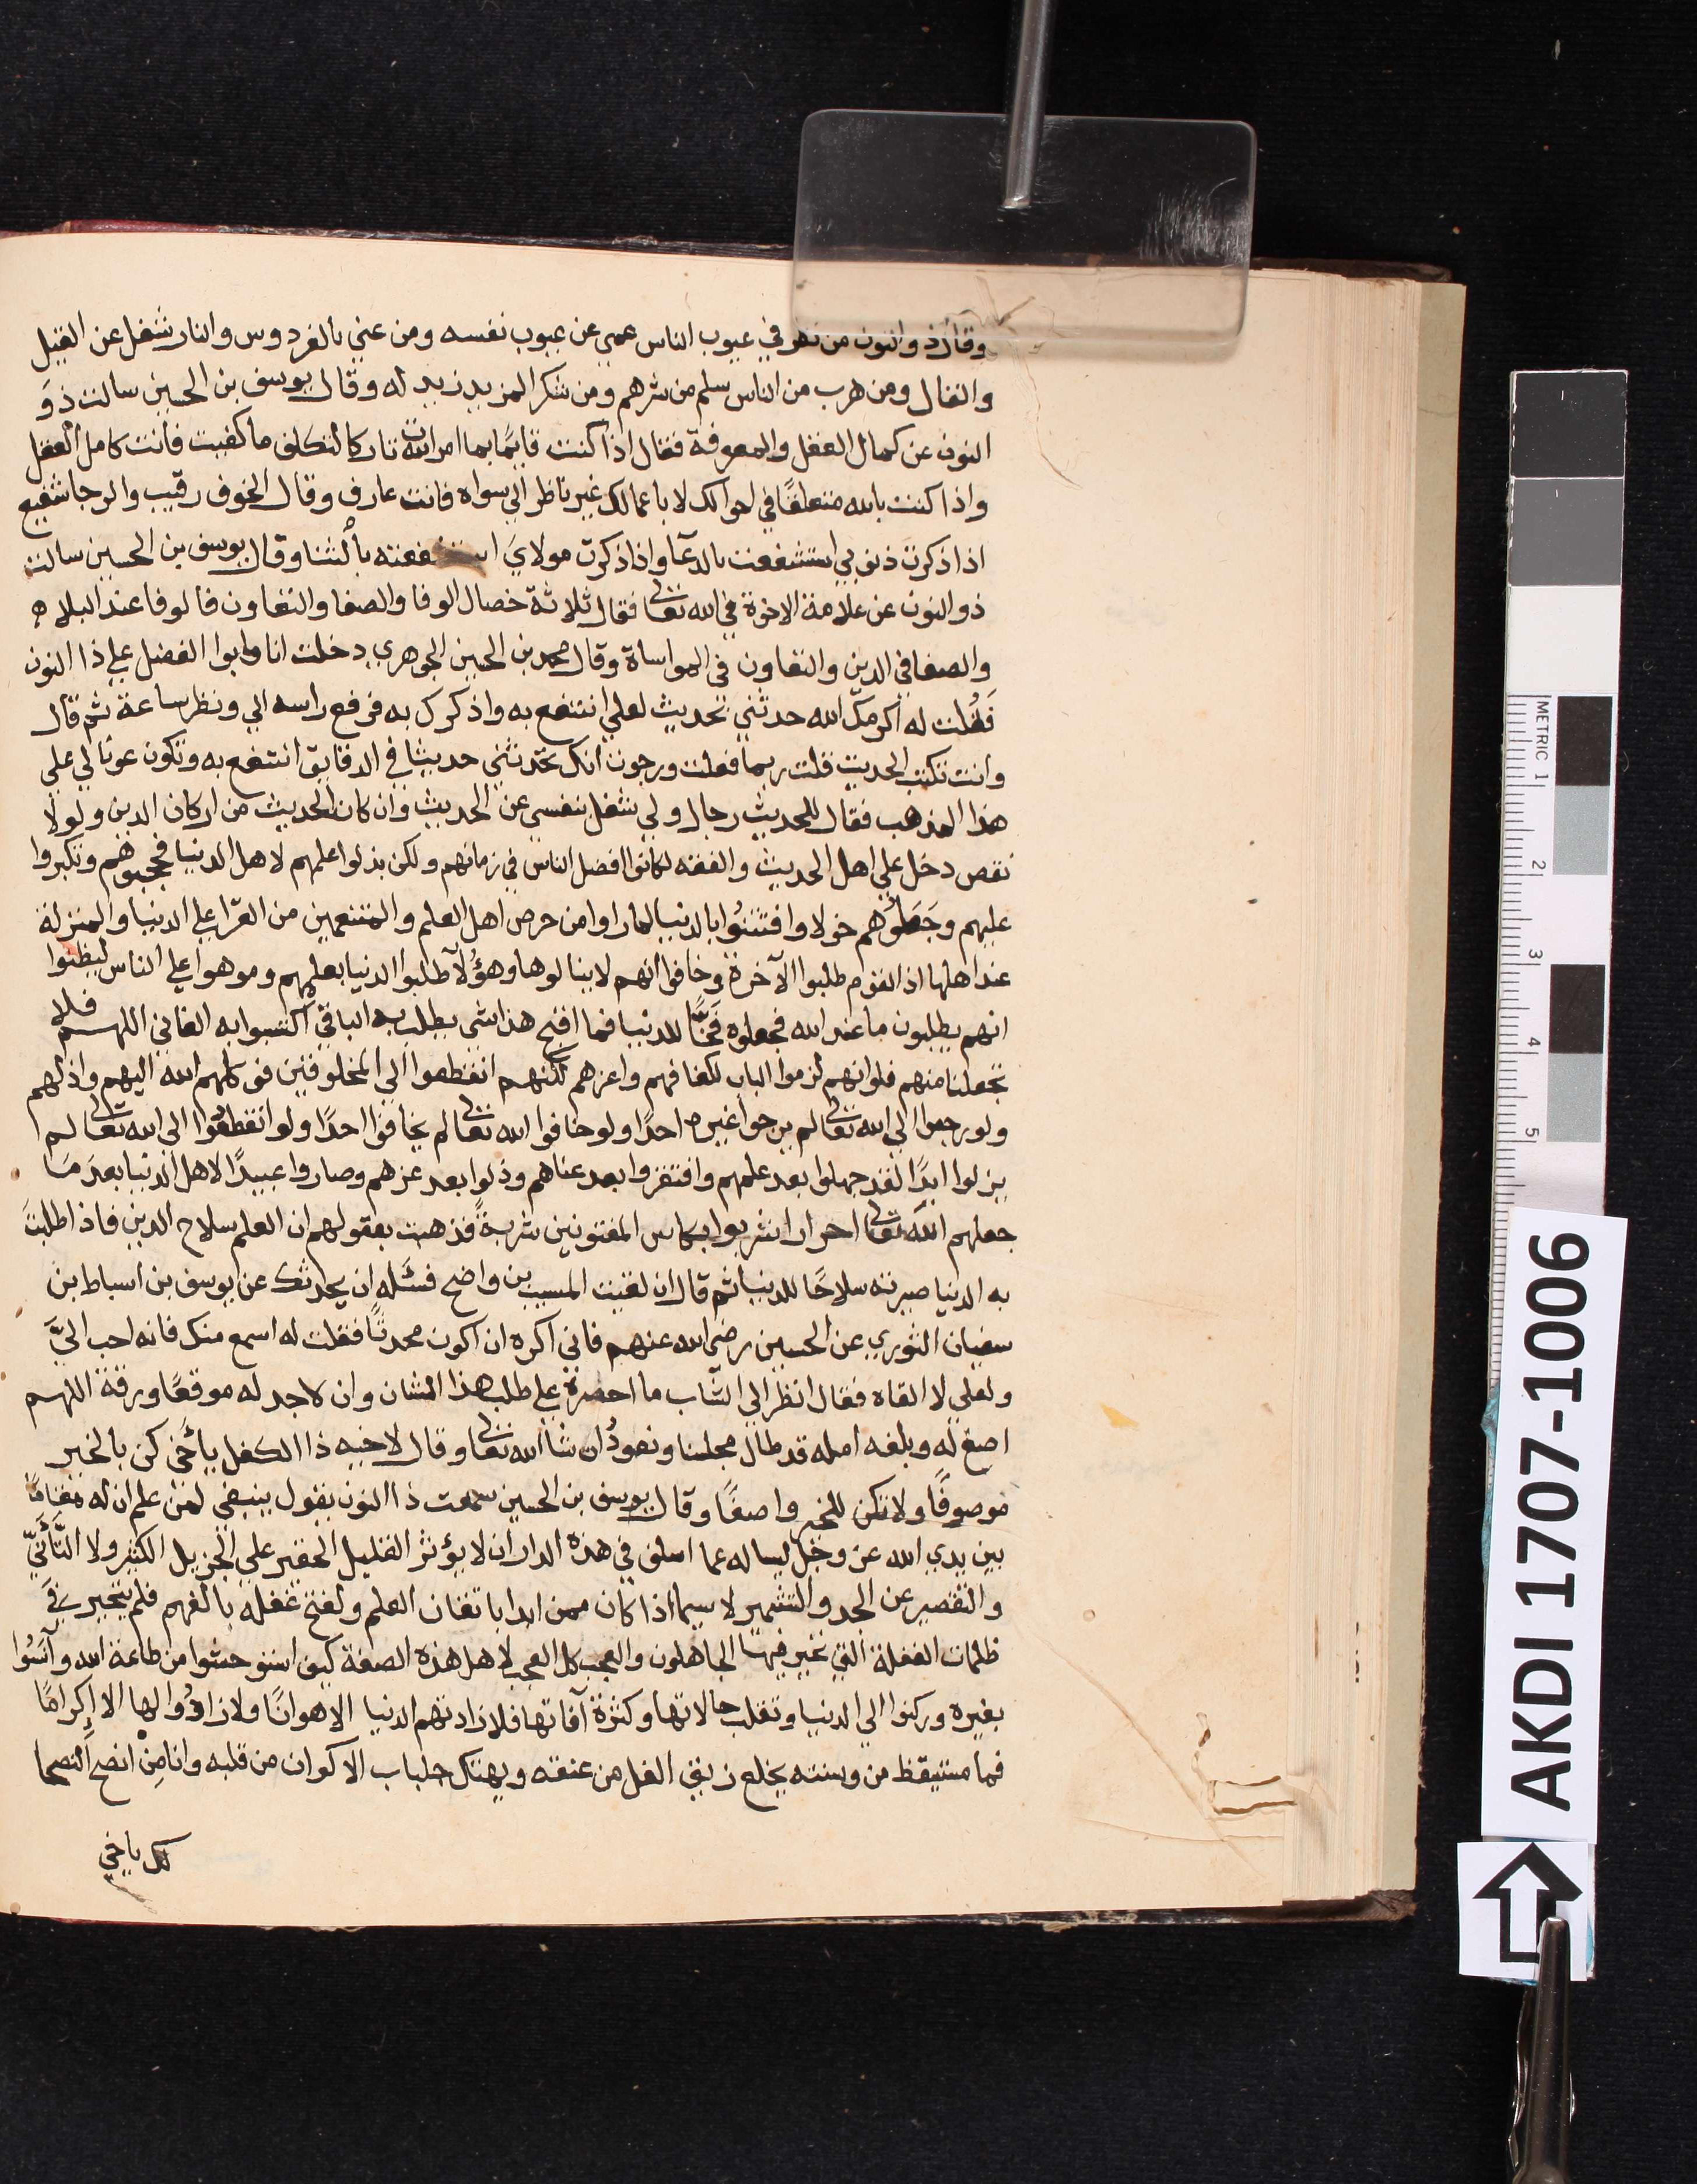 وقال ذو النون من نظر في عيوب الناس عمي عن عيوب نفسه ومن عني بالفردوس والنار شغل عن القيل
والقال ومن هرب من الناس سلم من شرهم ومن شكر المزيد زيد له وقال يوسف بن الحسين سالت ذو
النون عن كمال العقل والمعرفة فقال اذا كنت قايمًا بما امرت تاركا لتكلف ما كفيت فانت كامل العقل
واذا كنت بالله متعلقًا في احوالك لا باعمالك غير ناظر الي سواه فانت عارف وقال الخوف رقيب والرجا شفيع
اذا ذكرت ذنوبي استشفعت بالدعا واذا ذكرت مولاي استشفعته بالثنا وقال يوسف بن الحسين سالت
ذو النون عن علامة الاخوة في الله تعالى فقال ثلاثة خصال الوفا والصفا والتعاون فالوفا عند البلاء
والصفا في الدين والتعاون في المواساة وقال محمد بن الحسين الجوهري دخلت انا وابوا الفضل علي ذا النون
فقلت له اكرمك الله حدثني بحديث لعلي انتفع به واذكرك به فرفع راسه الي ونظر ساعة ثم قال
وانت تكتب الحديث قلت ربما فعلت ورجوت انك تحدثني حديثا في الدقايق انتفع به وتكون عونا لي علي
هذا المذهب فقال للحديث رجال ولي شغل بنفسي عن الحديث وان كان الحديث من اركان الدين ولولا
نقص دخل علي اهل الحديث والفقه لكانوا افضل الناس في زمانهم ولكن بذلوا علمهم لاهل الدنيا فحجبوهم وتكبروا
عليهم وجعلوهم خولا وافتتنوا بالدنيا لما راوا من حرص اهل العلم والمتنعمين من القرا علي الدنيا والمنزلة
عند اهلها اذ القوم طلبوا الآخرة وخافوا انهم لا ينالوها وهؤلآ طلبوا الدنيا بعلمهم وموهوا علي الناس ليظنوا
انهم يطلبون ما عند الله فجعلوه فخًّا للدنيا فما اقبح هذا شي يطلب به الباقي اكتسبوا به الفاني اللهم فلا
تجعلنا منهم فلو انهم لزموا الباب لكفا فهم واعزهم لكنهم انقطعوا الي المخلوقين فوكلهم الله اليهم واذلهم
ولو رجعوا الي الله تعالى لم يرجوا غيره احدًا ولو خافوا الله تعالى لم يخافوا احدًا ولو انقطعوا الى الله تعالى لم
يزلوا ابدًا لقد جهلوا بعد علمهم وافتقروا بعد غناهم وذلوا بعد عزهم وصاروا عبيدًا لاهل الدنيا بعد ما
جعلهم الله تعالى احرارا شربوا بكاس المفتونين شربةً فذهبت بعقولهم ان العلم سلاح الدين فاذا طلبت
به الدنيا صيرته سلاحًا للدنيا ثم قال ان لقيت المسيب بن واضح فسئله ان يحدثك عن يوسف بن اسباط بن
سفيان الثوري عن الحسين رضى الله عنهم فاني اكره ان اكون محدثًا فقلت له اسمع منك فانه احب اليَّ
ولعلي لا القاه فقال انظر الي الشاب ما احضرة علي طلب هذا الشان وان لاجد له موقعًا ورقة اللهم
اصغ له وبلغه امله قد طال مجلسنا ونعود ان شا الله تعالى وقال لاخيه ذا الكفل يا أخي كن بالخير
موصوفًا ولا تكن للخير واصفًا وقال يوسف بن الحسين سمعت ذا النون يقول ينبغي لمن علم ان له مقامًا
بين يدي الله عز وجل ليساله عما اسلف في هذه الدار ان لا يؤثر القليل الحقير علي الجزيل الكثير ولا التأني
والتقصير عن الجد والتشمير لا سيما اذا كان ممن ابدا باتقان العلم ولقح عقله بالفهم فلم يتحير في
ظلمات الغفلة التي تحير فيها الجاهلون والعجب كل العجب لاهل هذه الصفة كيف استوحشوا من طاعة الله وآنسوا
بغيره وركنوا الي الدنيا وتقلب حالاتها وكثرة آفاتها فلا زادتهم الدنيا الا هوانًا ولا زادوا لها الا إكرامًا
فما مستيقظ من وسنته يخلع زيق الغل من عنقه ويهتك جلباب الاكوان من قلبه وانا من انصح النصحا
لك يا خي
AKDI 1707-1006
METRIC 1
2
3
4
5